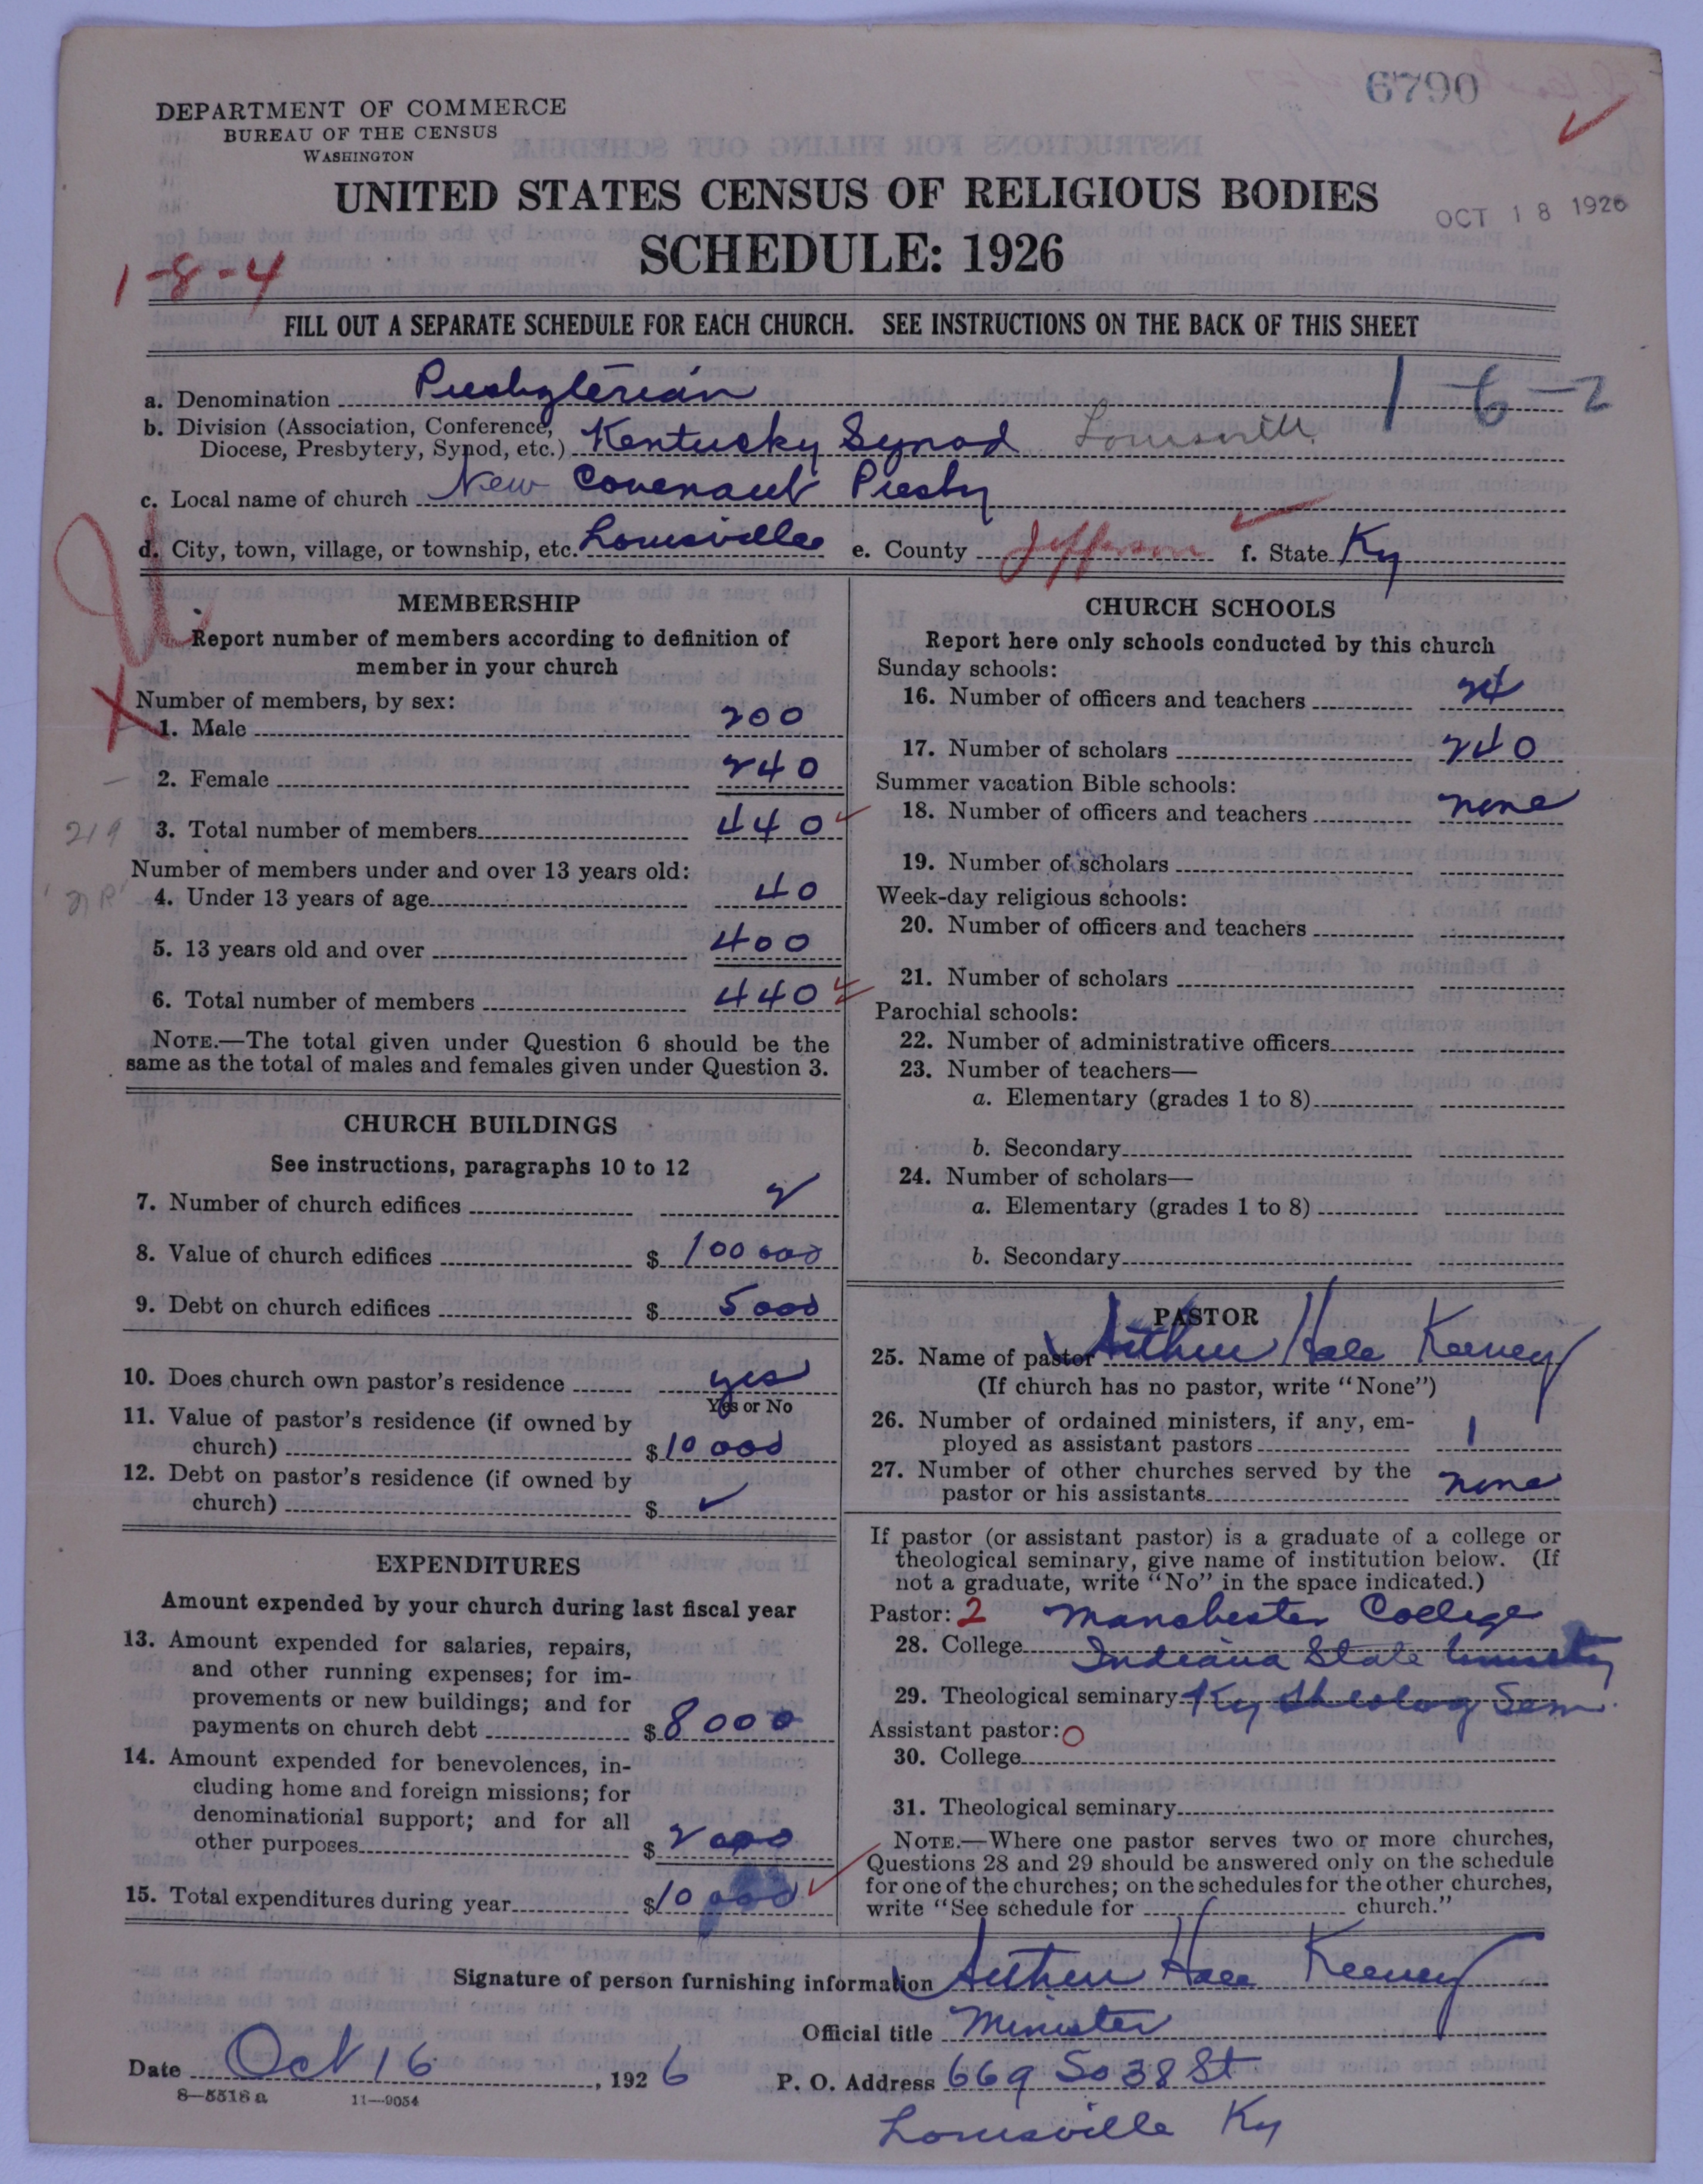 6790
DEPARTMENT OF COMMERCE
BUREAU OF THE CENSUS
WASHINGTON
UNITED STATES CENSUS OF RELIGIOUS BODIES
OCT 18 1926
SCHEDULE: 1926
1-8-4
FILL OUT A SEPARATE SCHEDULE FOR EACH CHURCH. SEE INSTRUCTIONS ON THE BACK OF THIS SHEET
1-6-2
a. Denomination Presbyterian
b. Division (Association, Conference,
Diocese, Presbytery, Synod, etc.) Kentucky Synod Louisville
c. Local name of church New Covenant Presby
d. City, town, village, or township, etc. Louisville e. County Jefferson f. State Ky
MEMBERSHIP
Report number of members according to definition of
member in your church
Number of members, by sex:
1. Male 200
2. Female 240
219
3. Total number of members 440
Number of members under and over 13 years old:
4. Under 13 years of age 40
5. 13 years old and over 400
6. Total number of members 440
NOTE.—The total given under Question 6 should be the
same as the total of males and females given under Question 3.
CHURCH BUILDINGS
See instructions, paragraphs 10 to 12
7. Number of church edifices 2
8. Value of church edifices $ 100 000
9. Debt on church edifices $ 5000
10. Does church own pastor's residence yes
Yes or No
11. Value of pastor's residence (if owned by
church) $ 10 000
12. Debt on pastor's residence (if owned by
church) $ ✓
EXPENDITURES
Amount expended by your church during last fiscal year
13. Amount expended for salaries, repairs,
and other running expenses; for im-
provements or new buildings; and for
payments on church debt $ 8000
14. Amount expended for benevolences, in-
cluding home and foreign missions; for
denominational support; and for all
other purposes $ 2000
15. Total expenditures during year $ 10 000
CHURCH SCHOOLS
Report here only schools conducted by this church
Sunday schools:
16. Number of officers and teachers 24
17. Number of scholars 240
Summer vacation Bible schools:
18. Number of officers and teachers none
19. Number of scholars
Week-day religious schools:
20. Number of officers and teachers
21. Number of scholars
Parochial schools:
22. Number of administrative officers
23. Number of teachers—
a. Elementary (grades 1 to 8)
b. Secondary
24. Number of scholars—
a. Elementary (grades 1 to 8)
b. Secondary
PASTOR
25. Name of pastor Arthur Hale Keeney
(If church has no pastor, write "None")
26. Number of ordained ministers, if any, em-
ployed as assistant pastors 1
27. Number of other churches served by the
pastor or his assistants none
If pastor (or assistant pastor) is a graduate of a college or
theological seminary, give name of institution below. (If
not a graduate, write "No" in the space indicated.)
Pastor: 2 Manchester College
28. College Indiana State University
29. Theological seminary Ky Theolog Sem
Assistant pastor: O
30. College
31. Theological seminary
NOTE.—Where one pastor serves two or more churches,
Questions 28 and 29 should be answered only on the schedule
for one of the churches; on the schedules for the other churches,
write "See schedule for church."
Signature of person furnishing information Arthur Hale Keeney
Official title Minister
Date Oct 16, 1926 P. O. Address 669 So 38 St
8—5518 a 11—9054
Louisville Ky